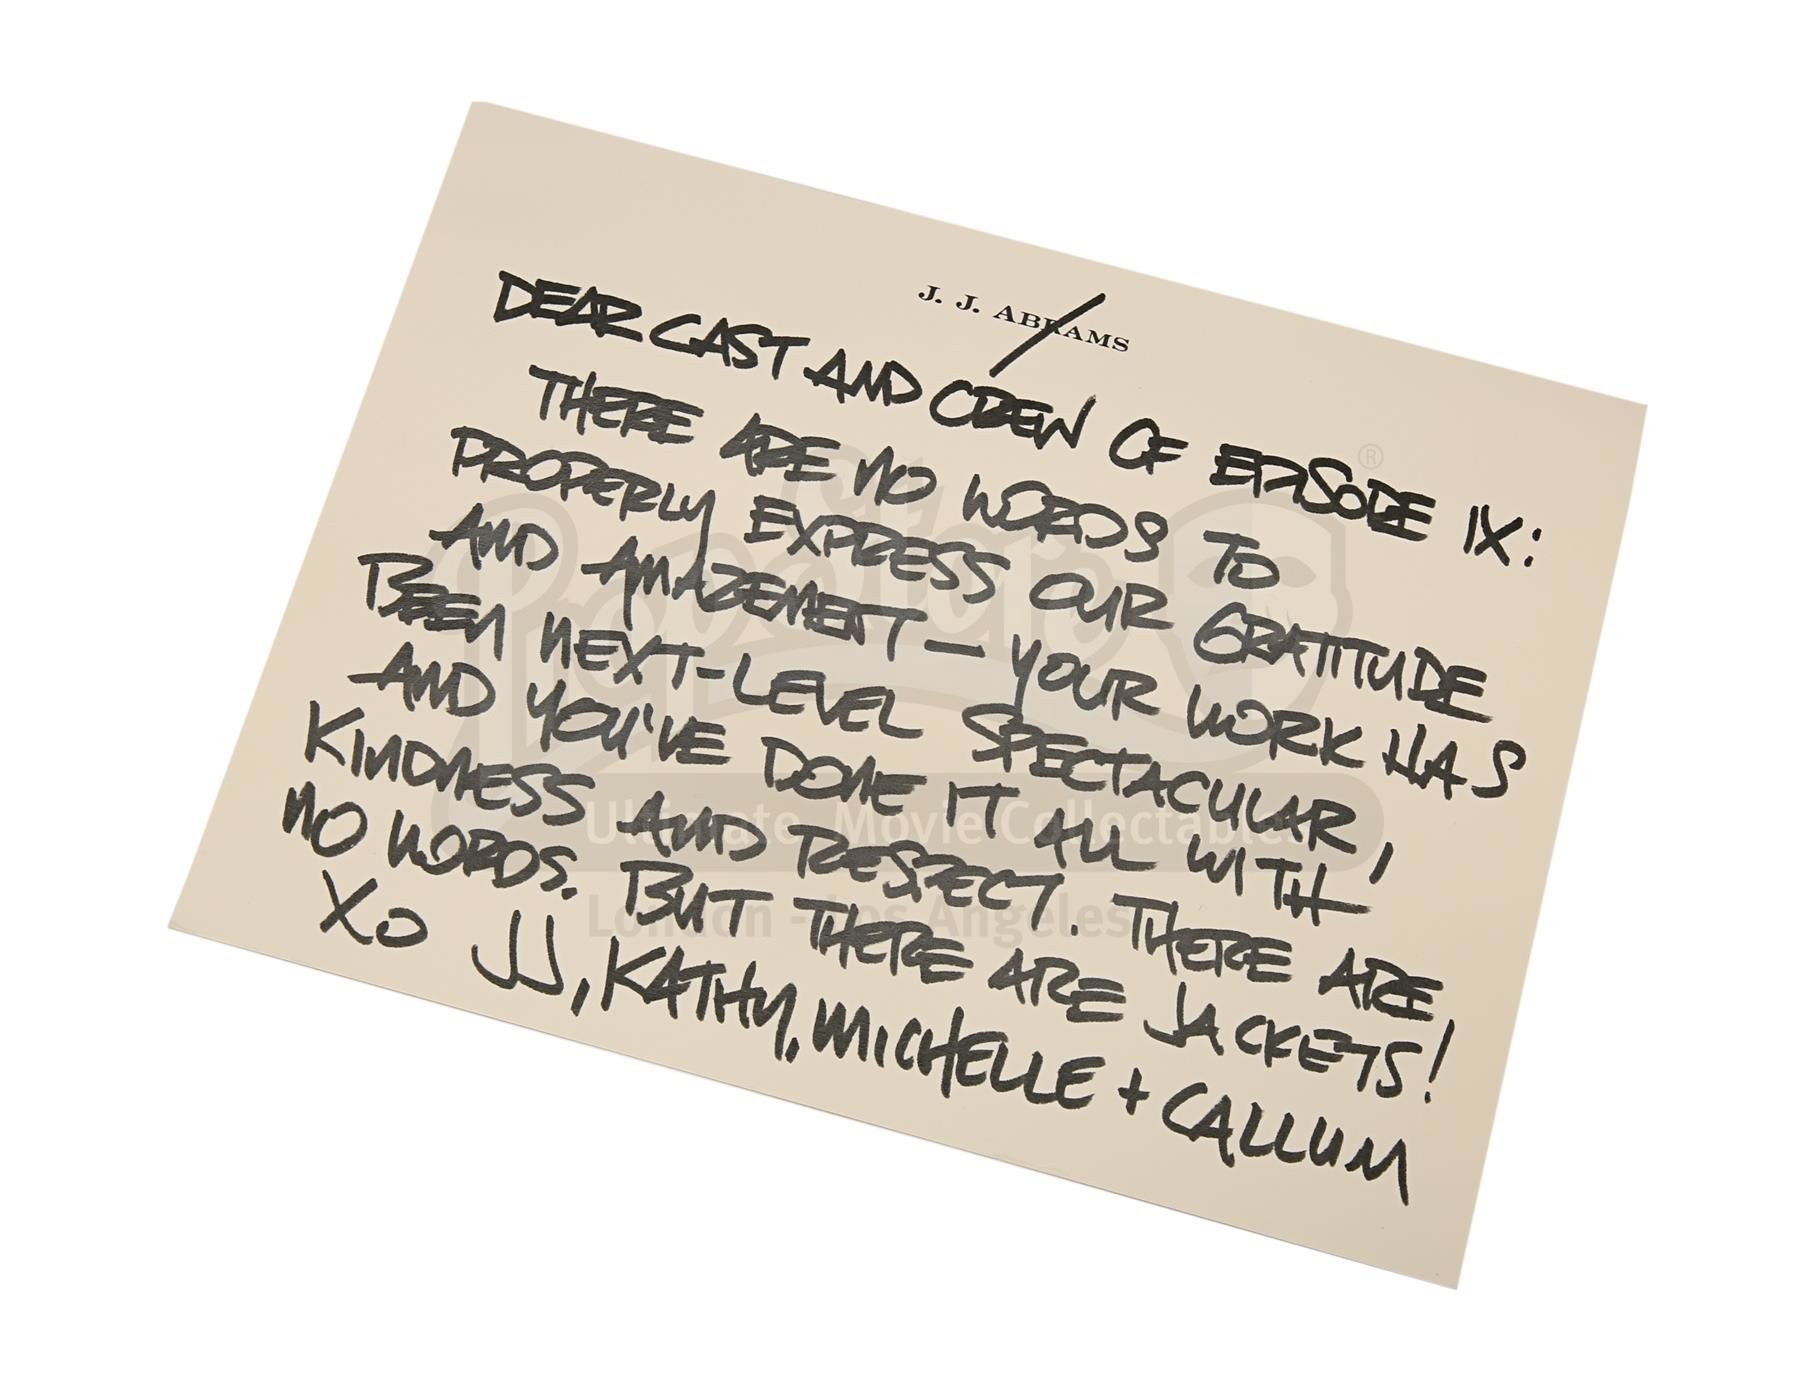 J. J. ABRAMS
DEAR CAST AND CREW OF EPISODE IX:
THERE ARE NO WORDS TO
PROPERLY EXPRESS OUR GRATITUDE
AND AMAZEMENT — YOUR WORK HAS
BEEN NEXT-LEVEL SPECTACULAR,
AND YOU'VE DONE IT ALL WITH
KINDNESS AND RESPECT. THERE ARE
NO WORDS. BUT THERE ARE JACKETS!
XO JJ, KATHY, MICHELLE + CALLUM
PropStore®
Ultimate Movie Collectables
London - Los Angeles